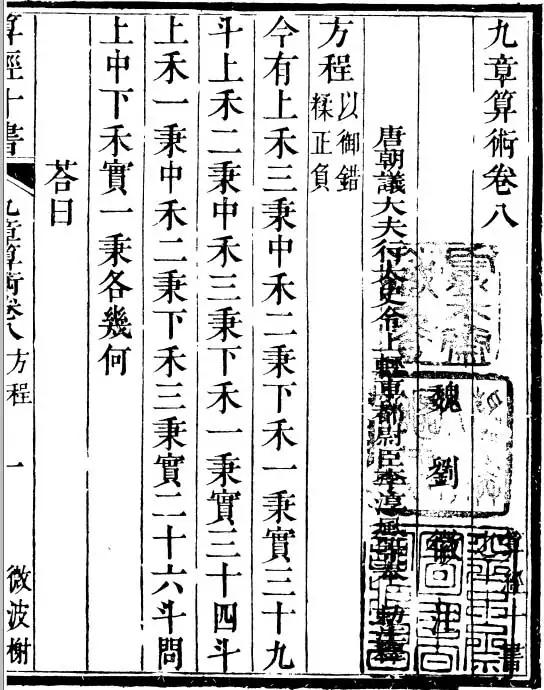 九章算術卷八
魏劉徽注
唐朝議大夫行太史令上輕車都尉臣李淳風等奉勑注釋
方程以御錯糅正負
今有上禾三秉中禾二秉下禾一秉實三十九
斗上禾二秉中禾三秉下禾一秉實三十四斗
上禾一秉中禾二秉下禾三秉實二十六斗問
上中下禾實一秉各幾何
荅曰
算經十書 九章算術卷八 方程 一 微波榭